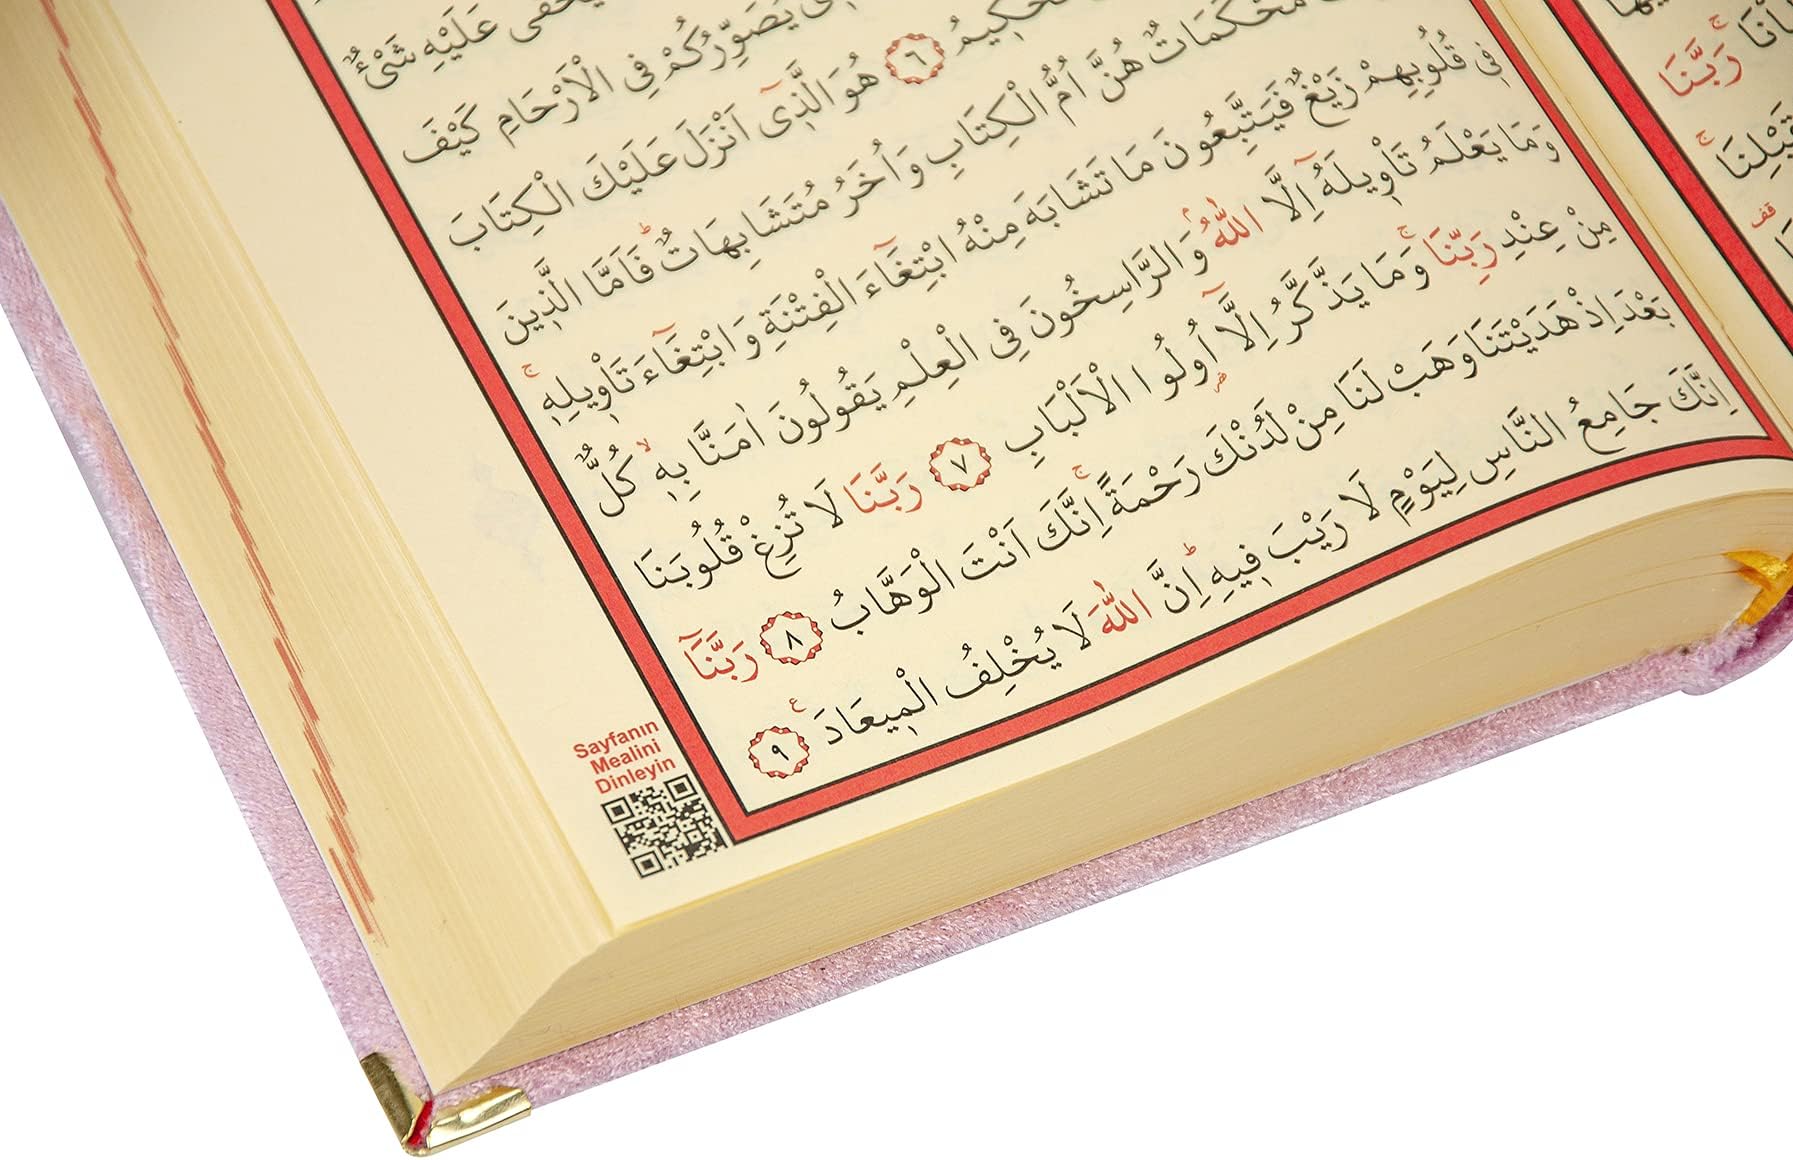 عَلَيْهِ شَيْءٌ
يُصَوِّرُكُمْ فِي الْاَرْحَامِ كَيْفَ
الْحَكِيمُ ٦ هُوَ الَّذ۪ٓي اَنْزَلَ عَلَيْكَ الْكِتَابَ
مُحْكَمَاتٌ هُنَّ اُمُّ الْكِتَابِ وَاُخَرُ مُتَشَابِهَاتٌۜ فَاَمَّا الَّذ۪ينَ
ف۪ي قُلُوبِهِمْ زَيْغٌ فَيَتَّبِعُونَ مَا تَشَابَهَ مِنْهُ ابْتِغَٓاءَ الْفِتْنَةِ وَابْتِغَٓاءَ تَاْو۪يلِه۪ۚ
وَمَا يَعْلَمُ تَاْو۪يلَهُٓ اِلَّا اللّٰهُۢ وَالرَّاسِخُونَ فِي الْعِلْمِ يَقُولُونَ اٰمَنَّا بِه۪ۙ كُلٌّ
مِنْ عِنْدِ رَبِّنَاۚ وَمَا يَذَّكَّرُ اِلَّٓا اُو۬لُوا الْاَلْبَابِ ٧ رَبَّنَا لَا تُزِغْ قُلُوبَنَا
بَعْدَ اِذْ هَدَيْتَنَا وَهَبْ لَنَا مِنْ لَدُنْكَ رَحْمَةًۚ اِنَّكَ اَنْتَ الْوَهَّابُ ٨ رَبَّنَٓا
اِنَّكَ جَامِعُ النَّاسِ لِيَوْمٍ لَا رَيْبَ ف۪يهِۜ اِنَّ اللّٰهَ لَا يُخْلِفُ الْم۪يعَادَ ٩ ع
Sayfanın
Mealini
Dinleyin
رَبَّنَاۚ
قَبْلِنَاۚ
قف